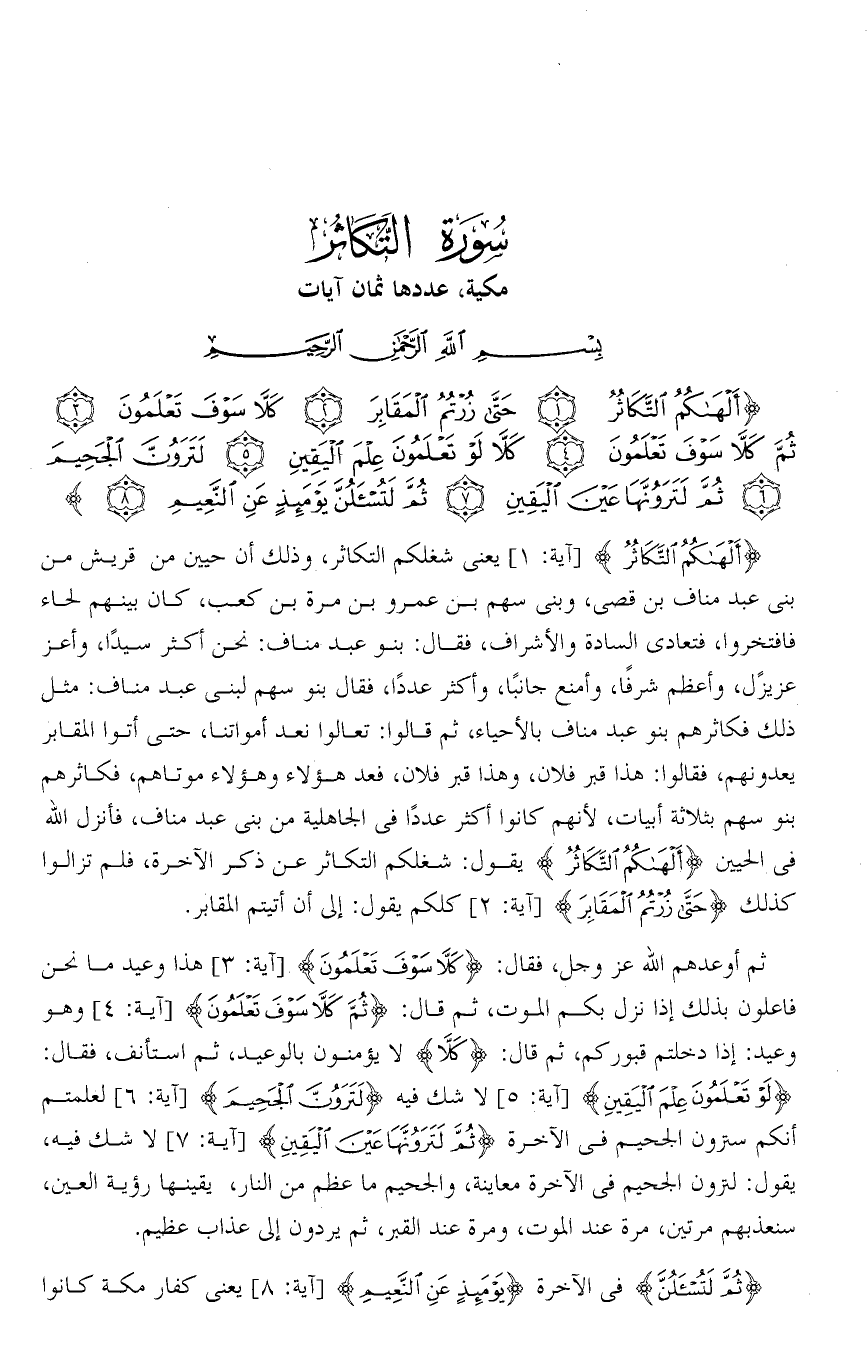 سُورَةُ التَّكَاثُرِ
مكية، عددها ثمان آيات
بِسْمِ ٱللَّهِ ٱلرَّحْمَٰنِ ٱلرَّحِيمِ
﴿أَلْهَىٰكُمُ ٱلتَّكَاثُرُ ١ حَتَّىٰ زُرْتُمُ ٱلْمَقَابِرَ ٢ كَلَّا سَوْفَ تَعْلَمُونَ ٣
ثُمَّ كَلَّا سَوْفَ تَعْلَمُونَ ٤ كَلَّا لَوْ تَعْلَمُونَ عِلْمَ ٱلْيَقِينِ ٥ لَتَرَوُنَّ ٱلْجَحِيمَ
٦ ثُمَّ لَتَرَوُنَّهَا عَيْنَ ٱلْيَقِينِ ٧ ثُمَّ لَتُسْـَٔلُنَّ يَوْمَئِذٍ عَنِ ٱلنَّعِيمِ ٨ ﴾
﴿أَلْهَىٰكُمُ ٱلتَّكَاثُرُ ﴾ [آية: ١] يعنى شغلكم التكاثر، وذلك أن حيين من قريش من
بنى عبد مناف بن قصى، وبنى سهم بن عمرو بن مرة بن كعب، كان بينهم لحاء
فافتخروا، فتعادى السادة والأشراف، فقال: بنو عبد مناف: نحن أكثر سيدًا، وأعز
عزيزًل، وأعظم شرفًا، وأمنع جانبًا، وأكثر عددًا، فقال بنو سهم لبنى عبد مناف: مثل
ذلك فكاثرهم بنو عبد مناف بالأحياء، ثم قالوا: تعالوا نعد أمواتنا، حتى أتوا المقابر
يعدونهم، فقالوا: هذا قبر فلان، وهذا قبر فلان، فعد هؤلاء وهؤلاء موتاهم، فكاثرهم
بنو سهم بثلاثة أبيات، لأنهم كانوا أكثر عددًا فى الجاهلية من بنى عبد مناف، فأنزل الله
فى الحيين ﴿أَلْهَىٰكُمُ ٱلتَّكَاثُرُ ﴾ يقول: شغلكم التكاثر عن ذكر الآخرة، فلم تزالوا
كذلك ﴿حَتَّىٰ زُرْتُمُ ٱلْمَقَابِرَ﴾ [آية: ٢] كلكم يقول: إلى أن أتيتم المقابر.
ثم أوعدهم الله عز وجل، فقال: ﴿كَلَّا سَوْفَ تَعْلَمُونَ﴾ [آية: ٣] هذا وعيد ما نحن
فاعلون بذلك إذا نزل بكم الموت، ثم قال: ﴿ثُمَّ كَلَّا سَوْفَ تَعْلَمُونَ﴾ [آية: ٤] وهو
وعيد: إذا دخلتم قبوركم، ثم قال: ﴿كَلَّا﴾ لا يؤمنون بالوعيد، ثم استأنف، فقال:
﴿لَوْ تَعْلَمُونَ عِلْمَ ٱلْيَقِينِ﴾ [آية: ٥] لا شك فيه ﴿لَتَرَوُنَّ ٱلْجَحِيمَ﴾ [آية: ٦] لعلمتم
أنكم سترون الجحيم فى الآخرة ﴿ثُمَّ لَتَرَوُنَّهَا عَيْنَ ٱلْيَقِينِ﴾ [آية: ٧] لا شك فيه،
يقول: لترون الجحيم فى الآخرة معاينة، والجحيم ما عظم من النار، يقينها رؤية العين،
سنعذبهم مرتين، مرة عند الموت، ومرة عند القبر، ثم يردون إلى عذاب عظيم.
﴿ثُمَّ لَتُسْـَٔلُنَّ﴾ فى الآخرة ﴿يَوْمَئِذٍ عَنِ ٱلنَّعِيمِ﴾ [آية: ٨] يعنى كفار مكة كانوا